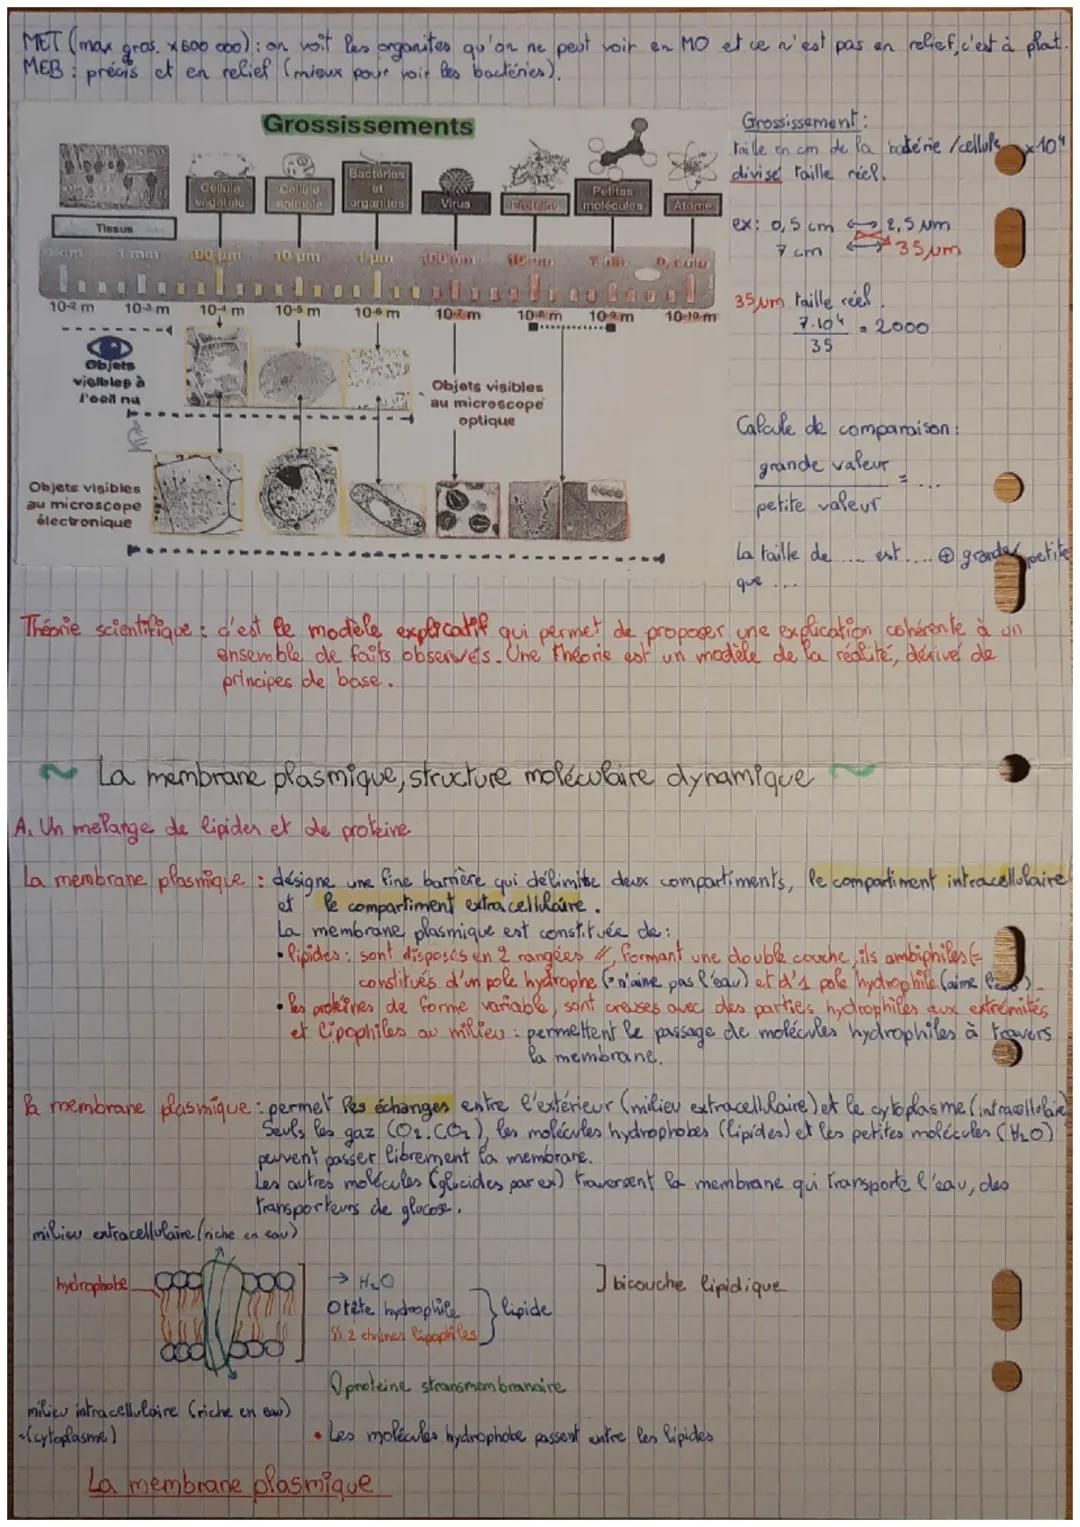 MET (max gros. x 600 000) : on voit les organites qu'on ne peut voir en MO et ce n'est pas en relief, c'est à plat.
MEB : précis et en relief (mieux pour voir les bactéries).
Grossissements
Cellule végétale
Cellule animale
Bactéries et organites
Virus
Protéine
Petites molécules
Atome
Tissus
1 cm 1 mm 100 µm 10 µm 1 µm 100 nm 10 nm 1 nm 0,1 nm
10-2 m 10-3 m 10-4 m 10-5 m 10-6 m 10-7 m 10-8 m 10-9 m 10-10 m
Objets visibles à l'oeil nu
Objets visibles au microscope optique
Objets visibles au microscope électronique
Grossissement :
taille en cm de la bactérie / cellule x10⁴
divisé taille réel.
ex : 0,5 cm ↔ 2,5 µm
7 cm ↔ 35 µm
35 µm taille réel.
7.10⁴ = 2000
35
Calcule de comparaison :
grande valeur = ...
petite valeur
La taille de .... est .... ⊕ grande/petite
que ...
Théorie scientifique : c'est le modèle explicatif qui permet de proposer une explication cohérente à un
ensemble de faits observés. Une théorie est un modèle de la réalité, dérivé de
principes de base.
~ La membrane plasmique, structure moléculaire dynamique ~
A. Un mélange de lipides et de proteine
La membrane plasmique : désigne une fine barrière qui délimite deux compartiments, le compartiment intracellulaire
et le compartiment extracellulaire.
La membrane plasmique est constituée de :
• lipides : sont disposés en 2 rangées //, formant une double couche, ils ambiphiles (=
constitués d'un pole hydrophe (= n'aime pas l'eau) et d'1 pole hydrophile (aime l'eau).
• les protéines de forme variable, sont creuses avec des parties hydrophiles aux extrémités
et lipophiles au milieu : permettent le passage de molécules hydrophiles à travers
la membrane.
la membrane plasmique : permet les échanges entre l'extérieur (milieu extracellulaire) et le cytoplasme (intracellulaire)
Seuls les gaz (O₂, CO₂), les molécules hydrophobes (lipides) et les petites molécules (H₂O)
peuvent passer librement la membrane.
Les autres molécules (glucides par ex) traversent la membrane qui transporte l'eau, des
transporteurs de glucose.
milieu extracellulaire (riche en eau)
hydrophobe
→ H₂O
O tête hydrophile
2 chaines lipophiles
} lipide
] bicouche lipidique
proteine stransmembranaire
milieu intracellulaire (riche en eau)
= (cytoplasme)
• Les molécules hydrophobe passent entre les lipides
La membrane plasmique